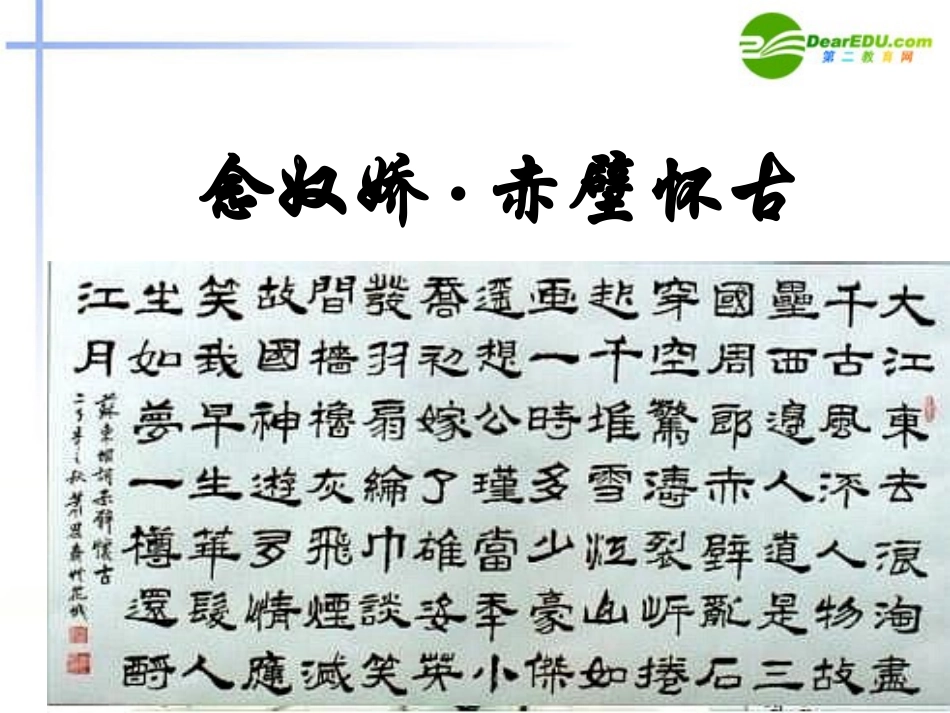 DearEDU.com
第二教育网
念奴娇·赤壁怀古
大江東去浪淘盡
千古風流人物故
壘西邊人道是三
國周郎赤壁亂石
穿空驚濤裂岸捲
起千堆雪江山如
画一時多少豪傑
遥想公瑾當年小
喬初嫁了雄姿英
發羽扇綸巾談笑
間檣櫓灰飛煙滅
故國神遊多情應
笑我早生華髮人
生如夢一樽還酹
江月
蘇東坡詞赤壁懷古